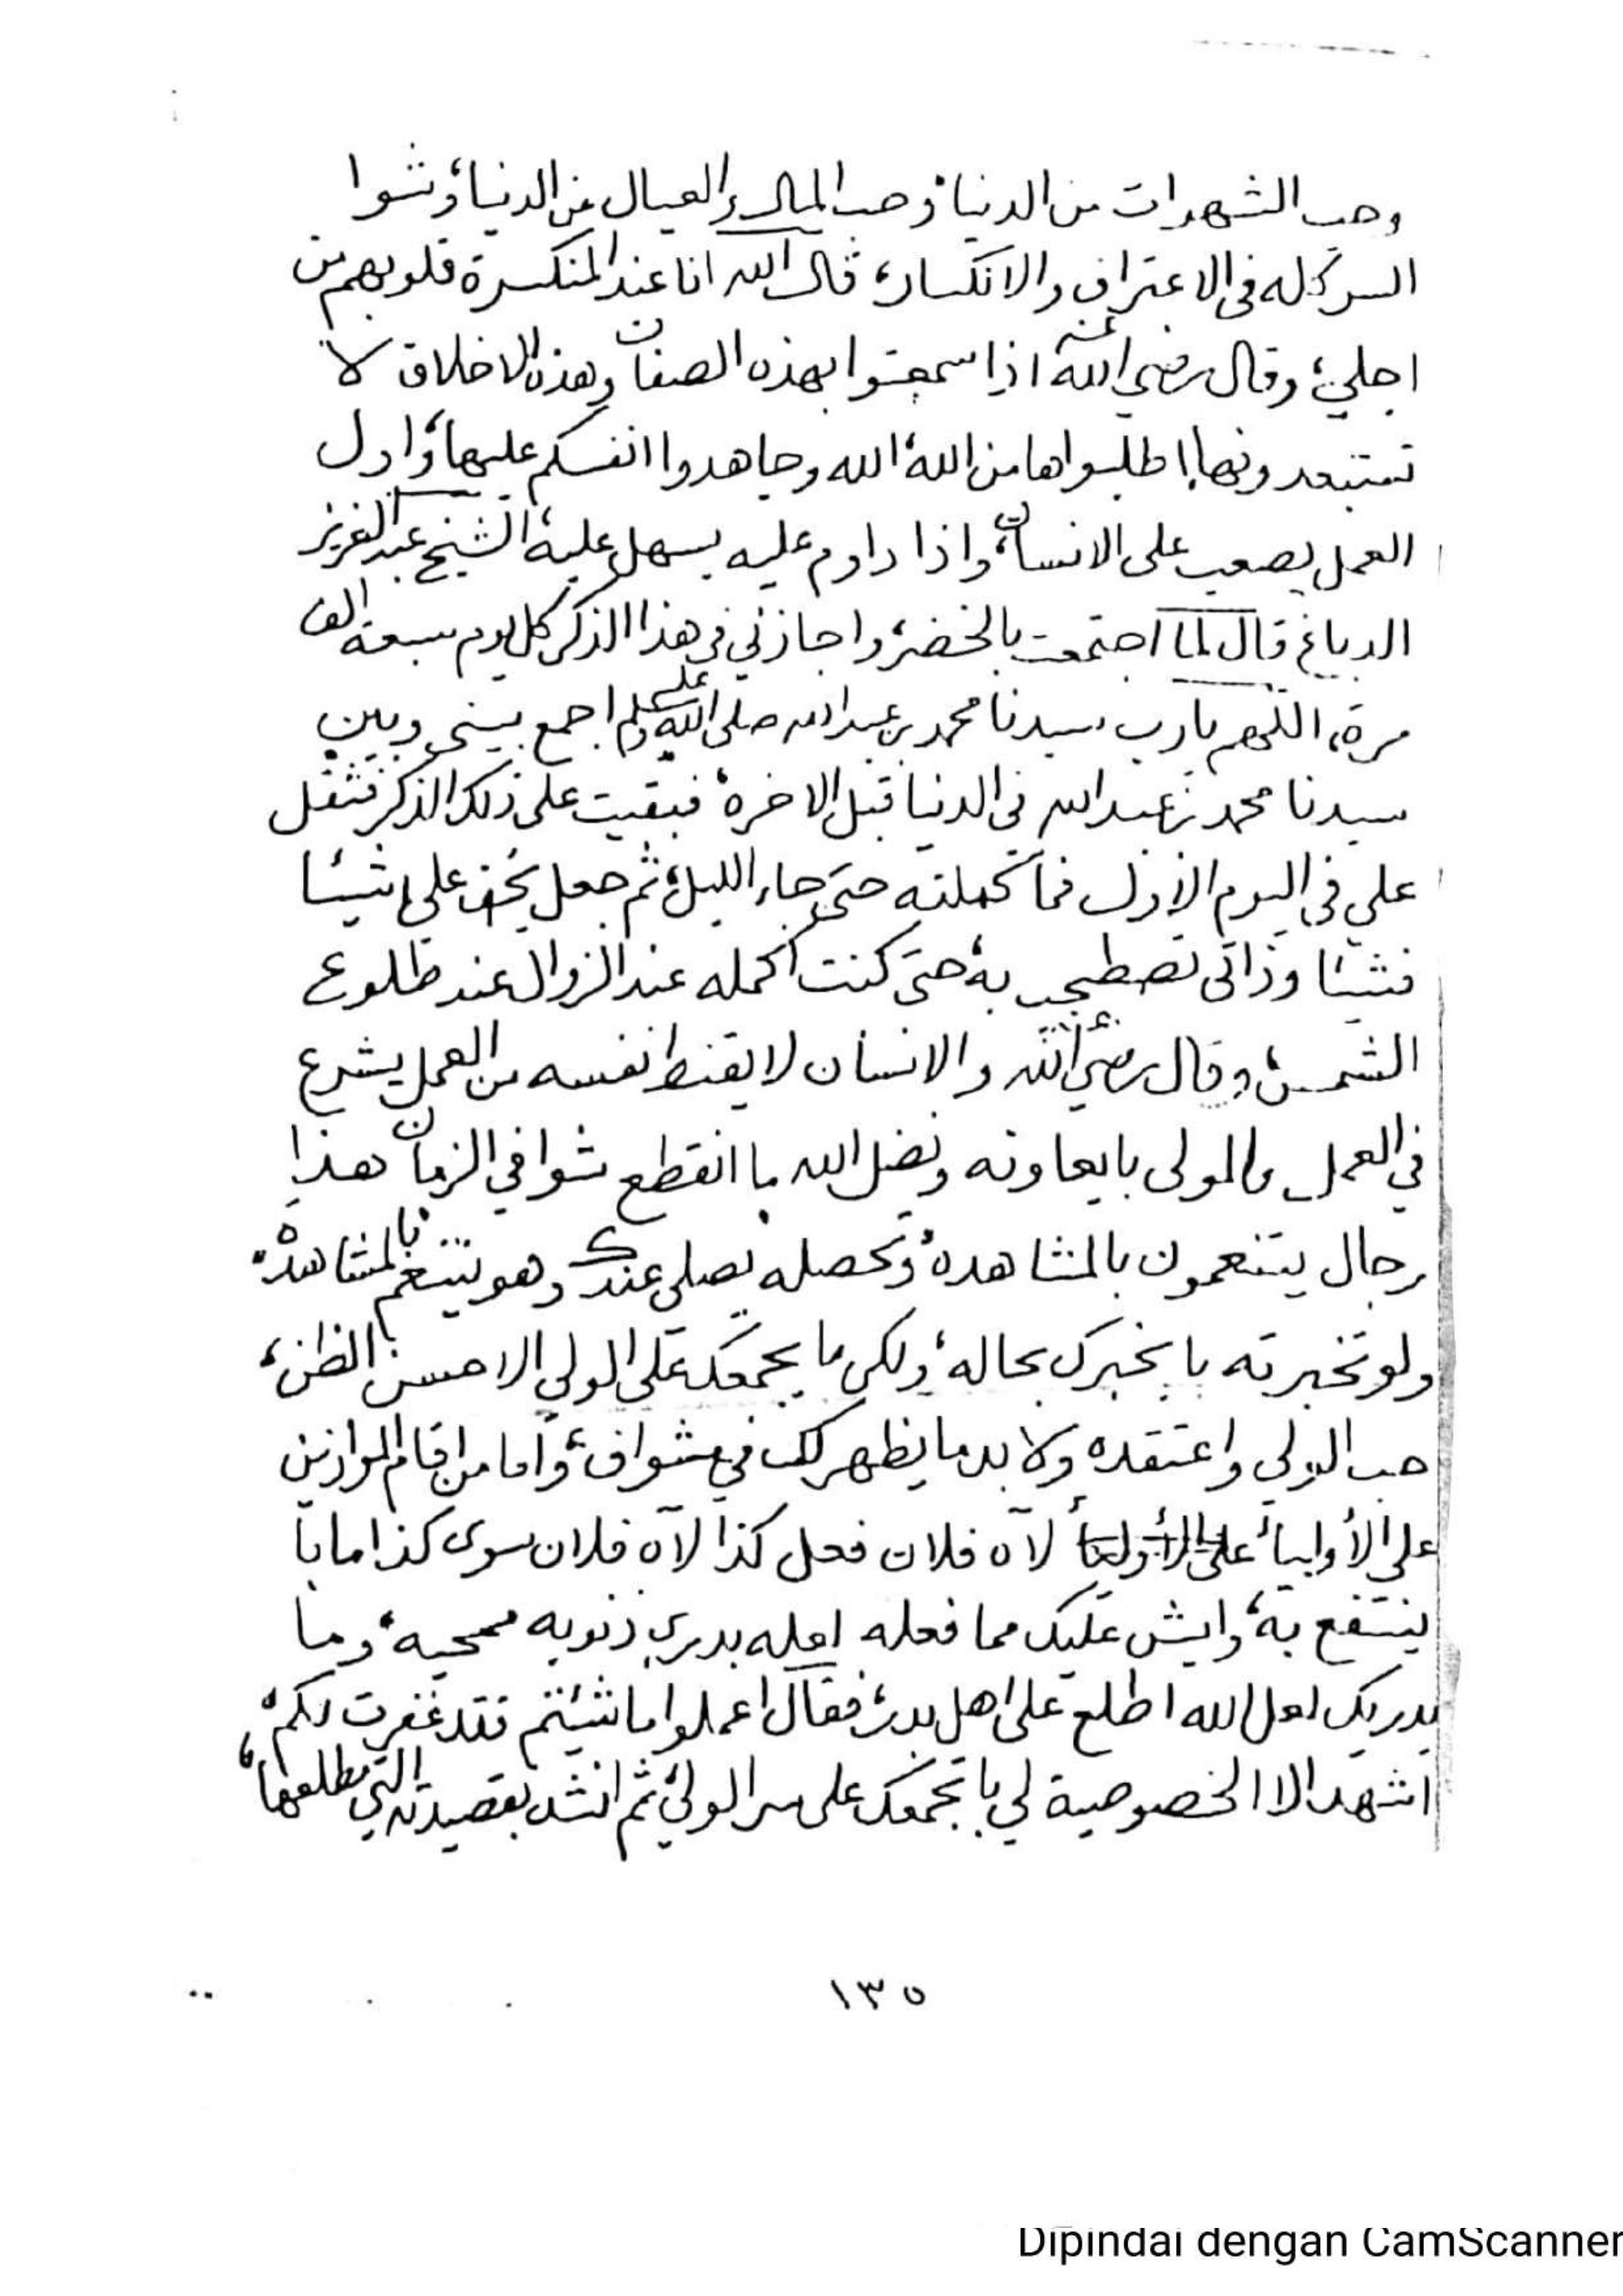 وحب الشهوات من الدنيا، وحب المال والعيال من الدنيا، وشوا
السر كله في الاعتراف والانكسار، قال الله انا عند المنكسرة قلوبهم من
اجلي، وقال رضي الله عنه اذا سمعتوا بهذه الصفات وهذه الاخلاق لا
تستبعدونها، اطلبواها من الله، الله الله وجاهدوا انفسكم عليها، واول
العمل يصعب على الانسان، واذا داوم عليه يسهل عليه، الشيخ عبد العزيز
الدباغ قال لما اجتمعت بالخضر، واجازني في هذا الذكر كل يوم سبعة الف
مرة، اللهم يارب سيدنا محمد بن عبدالله صلى الله عليه وسلم اجمع بيني وبين
سيدنا محمد بن عبدالله في الدنيا قبل الاخرة، فبقيت على ذلك الذكر فثقل
علي في اليوم الاول فما كملته حتى جاء الليل، ثم جعل يخف علي شيئا
فشيئا وذاتي تصطحب به، حتى كنت اكمله عند الزوال عند طلوع
الشمس، وقال رضي الله عنه والانسان لا يقنط نفسه من العمل يشرع
في العمل والمولى بايعاونه وفضل الله ما انقطع شوا في الزمان هذا
رجال يتنعمون بالمشاهدة، وتحصله يصلي عندك وهو يتنعم بالمشاهدة،
ولو تخبرته ما يخبرك بحاله، ولكن ما يجمعك على الولي الا حسن الظن،
حب الولي واعتقده ولا بد ما يظهر لك في مشواف، واما من اقام الموازين
على الأولياء على الأولياء لآه فلان فعل كذا لآه فلان سوى كذا ما با
ينتفع به، وايش عليك مما فعله لعله بدري ذنوبه ممحيه، وما
يدريك لعل الله اطلع على اهل بدر، فقال اعملوا ما شئتم فقد غفرت لكم،
اشهد الا الخصوصية لي با تجمعك على سر الولي، ثم انشد بقصيدته التي مطلعها،
١٣٥
Dipindai dengan CamScanner